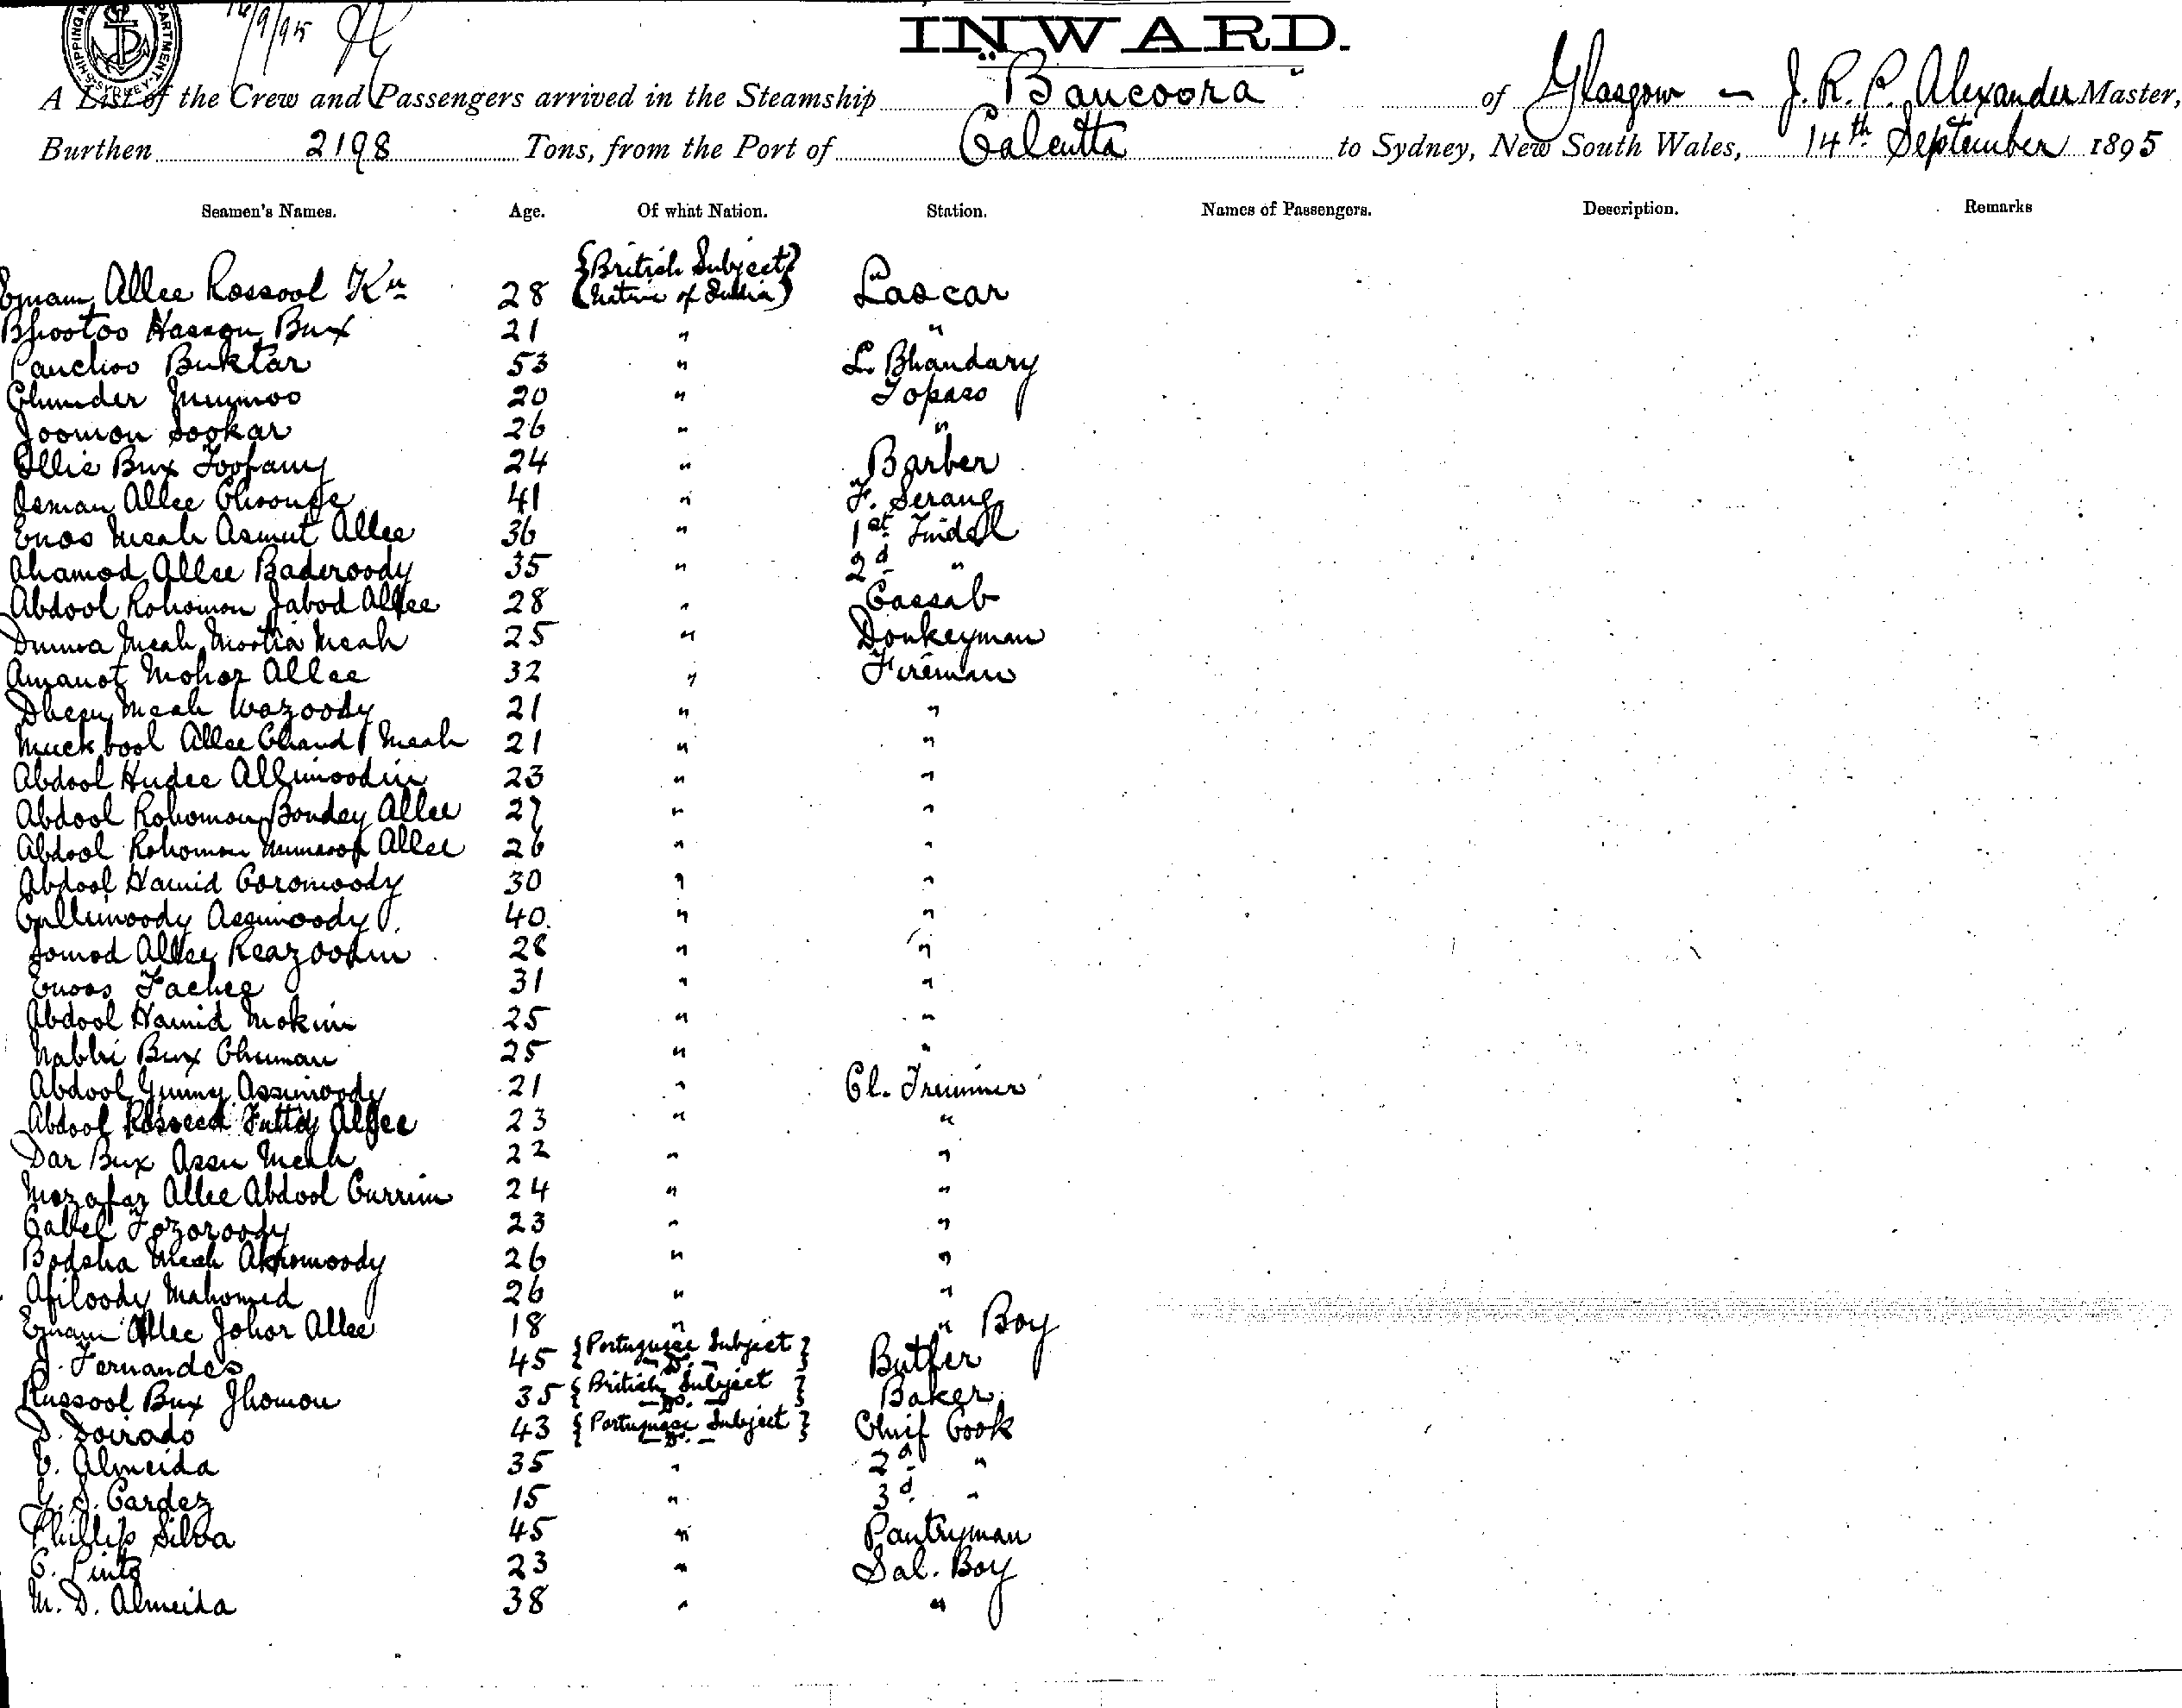 16/9/95
INWARD.
A List of the Crew and Passengers arrived in the Steamship "Bancoora" of Glasgow - J. R. P. Alexander Master,
Burthen 2198 Tons, from the Port of Calcutta to Sydney, New South Wales, 14th September 1895
Seamen's Names. Age. Of what Nation. Station. Names of Passengers. Description. Remarks
Emam Allee Rossool Kn 28 {British Subject} (Native of India) Lascar
Bhootoo Hasson Bux 21 " "
Panchoo Buktar 53 " L. Bhandary
Chunder Jummoo 20 " Topass
Joomon Sookar 26 " "
Ellie Bux Toofany 24 " Barber
Osman Allee 41 " F. Serang
Enos Meah Asmut Allee 36 " 1st Tindal
Ahamod Allee Baderoody 35 " 2d "
Abdool Rohomon Jabod Allee 28 " Cassab
Dumra Meah Mortia Meah 25 " Donkeyman
Amanot Mohor Allee 32 " Fireman
Dhenu Meah Wazoody 21 " "
Muckbool Allee Chand Meah 21 " "
Abdool Hudee Allimoodin 23 " "
Abdool Rohomon Bonday Allee 27 " "
Abdool Rohomon Munsoof Allee 26 " "
Abdool Hamid Coromoody 30 " "
Cullimoody Assimoody 40. " "
Somod Allee Reazoodin 28 " "
Enoos Fachee 31 " "
Abdool Hamid Mokim 25 " "
Nabbi Bux Chuman 25 " "
Abdool Gunny Assimoody 21 " Cl. Trimmer
Abdool Rosseed Futteh Allee 23 " "
Dar Bux Assu Meah 22 " "
Mozafar Allee Abdool Currim 24 " "
Cabel Fozoroody 23 " "
Bodsha Meah Akromoody 26 " "
Afiloody Mahomed 26 " "
Emam Allee Johor Allee 18 " " Boy
Fernandes 45 {Portuguese Subject - Do. -} Butler
Russool Bux Jhomon 35 {British Subject - Do. -} Baker
D. Doirado 43 {Portuguese Subject - Do. -} Chief Cook
E. Almeida 35 " 2d "
S. Cardez 15 " 3d "
Phillip Silva 45 " Pantryman
C. Pinto 23 " Sal. Boy
M. D. Almeida 38 " "